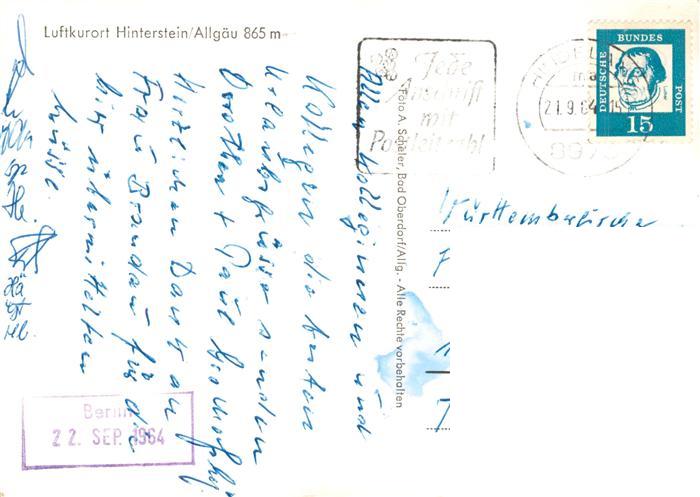 Luftkurort Hinterstein/Allgäu 865 m
Jede
Anschrift
mit
Postleitzahl
21.9.64
DEUTSCHE BUNDES POST
15
Foto A. Scheler, Bad Oberdorf/Allg. - Alle Rechte vorbehalten
Württembergische
Allen Kolleginnen und
Kollegen die besten
Urlaubsgrüsse senden
Dorothea + Paul
Herzlichen Dank an
Frau Brandau für die
mir übermittelten
Grüsse.
Berlin
22. SEP. 1964